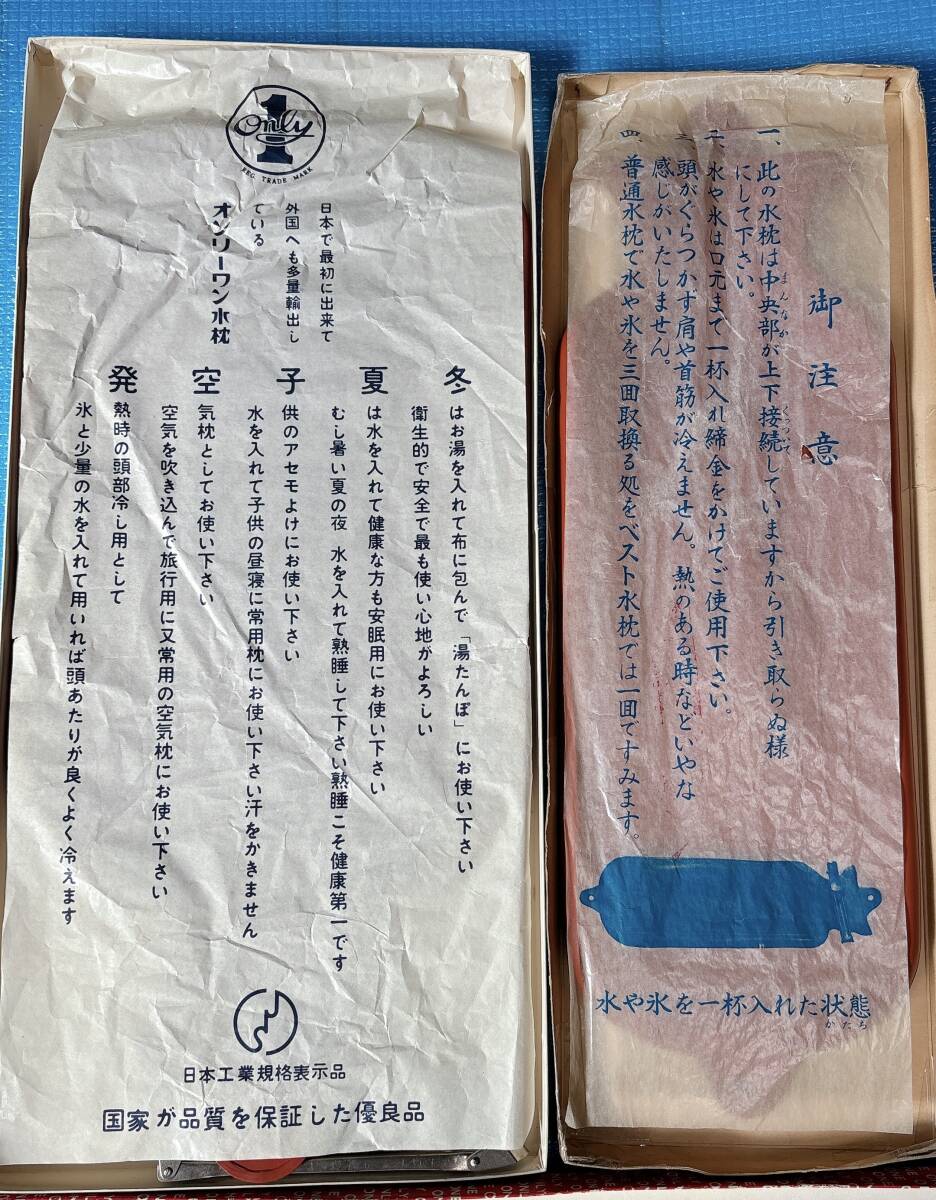 1
Only
REG. TRADE MARK
日本で最初に出来て
外国へも多量輸出し
ている
オンリーワン水枕
冬はお湯を入れて布に包んで「湯たんぽ」にお使い下さい
衛生的で安全で最も使い心地がよろしい
夏は水を入れて健康な方も安眠用にお使い下さい
むし暑い夏の夜 水を入れて熟睡して下さい熟睡こそ健康第一です
子供のアセモよけにお使い下さい
水を入れて子供の昼寝に常用枕にお使い下さい汗をかきません
空気枕としてお使い下さい
空気を吹き込んで旅行用に又常用の空気枕にお使い下さい
発熱時の頭部冷し用として
氷と少量の水を入れて用いれば頭あたりが良くよく冷えます
日本工業規格表示品
国家が品質を保証した優良品
御注意
一、此の水枕は中央部が上下接続していますから引き取らぬ様
まんなか
くっついて
にして下さい。
二、水や氷は口元まで一杯入れ締金をかけてご使用下さい。
三、頭がぐらつかず肩や首筋が冷えません。熱のある時などいやな
感じがいたしません。
四、普通水枕で水や氷を三回取換る処をベスト水枕では一回ですみます。
水や氷を一杯入れた状態
かたち